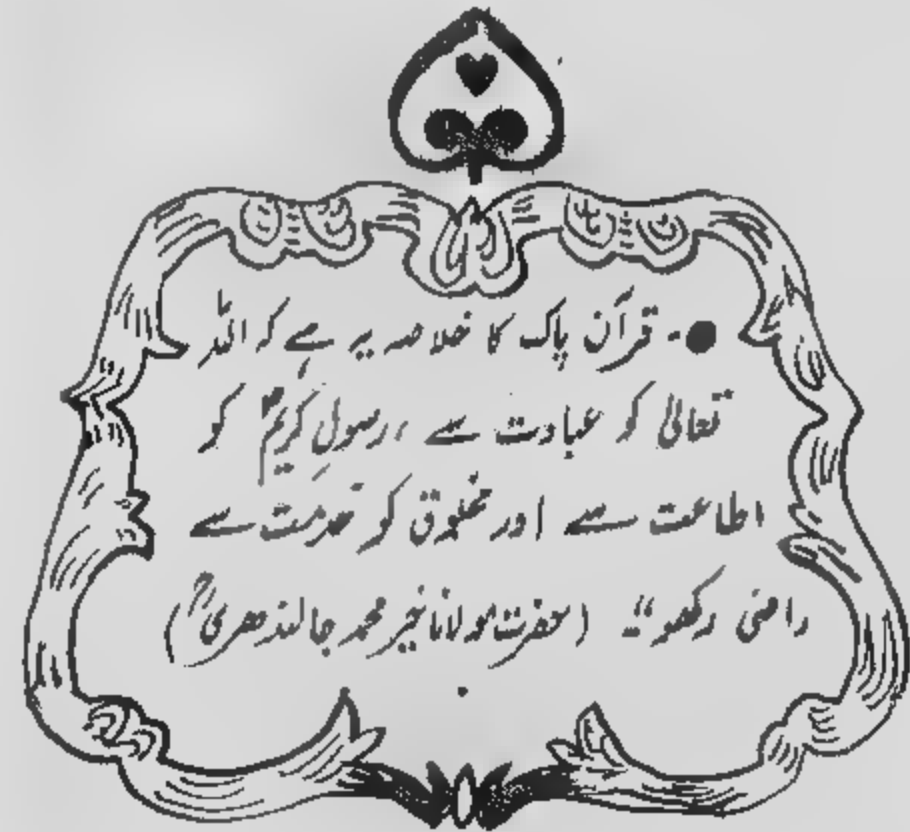 ●- قرآن پاک کا خلاصہ یہ ہے کہ اللہ
تعالیٰ کو عبادت سے ، رسولِ کریمؐ کو
اطاعت سے اور مخلوق کو خدمت سے
راضی رکھو‘‘ (حضرت مولانا خیر محمد جالندھریؒ)